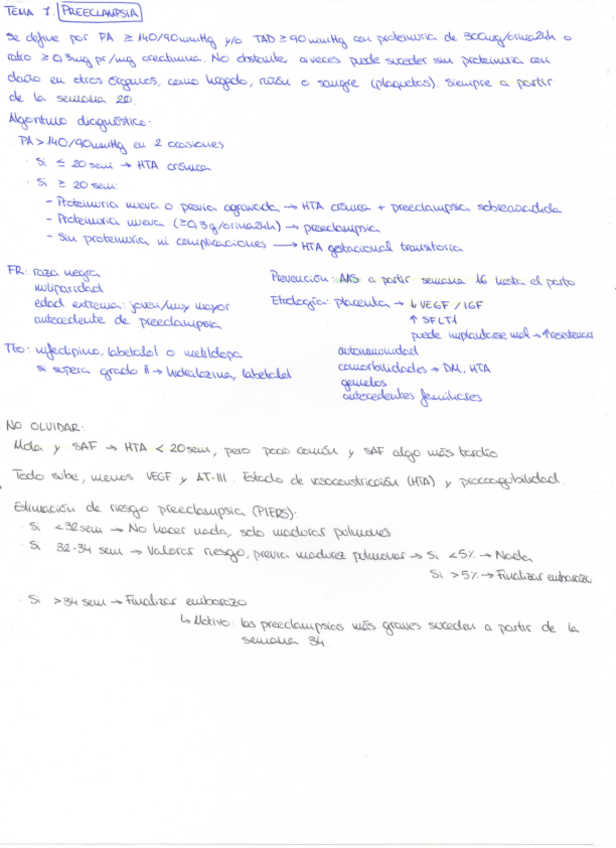 TEMA 7. PREECLAMPSIA
Se define por PA ≥ 140/90mmHg y/o TAD ≥ 90 mmHg con proteinuria de 300mg/orina24h o
ratio ≥ 0,3mg pr/mg creatinina. No obstante, a veces puede suceder sin proteinuria con
daño en otros órganos, como hígado, riñón o sangre (plaquetas). Siempre a partir
de la semana 20.
Algoritmo diagnóstico:
PA > 140/90mmHg en 2 ocasiones
· Si ≤ 20 sem → HTA crónica
· Si ≥ 20 sem:
- Proteinuria nueva o previa agravada → HTA crónica + preeclampsia sobreañadida
- Proteinuria nueva (≥0,3g/orina24h) → preeclampsia
- Sin proteinuria ni complicaciones → HTA gestacional transitoria
FR: raza negra
nuliparidad
edad extrema: joven/muy mayor
antecedente de preeclampsia
Prevención: AAS a partir semana 16 hasta el parto
Etiología: placenta → ↓ VEGF / IGF
↑ SFLT1
puede implantarse mal → ↑resistencias
autoinmunidad
comorbilidades → DM, HTA
gemelos
antecedentes familiares
Tto: nifedipino, labetalol o metildopa
si supera grado II → hidralazina, labetalol
NO OLVIDAR:
Mola y SAF → HTA < 20sem, pero poco común y SAF algo más tardío
Todo sube, menos VEGF y AT-III. Estado de vasoconstricción (HTA) y procoagulabilidad.
Estimación de riesgo preeclampsia (PIERS):
· Si <32 sem → No hacer nada, solo madurar pulmones
· Si 32-34 sem → Valorar riesgo, previa madurez pulmonar → Si <5% → Nada
Si >5% → Finalizar embarazo
· Si >34 sem → Finalizar embarazo
↳ Motivo: las preeclampsias más graves suceden a partir de la
semana 34.